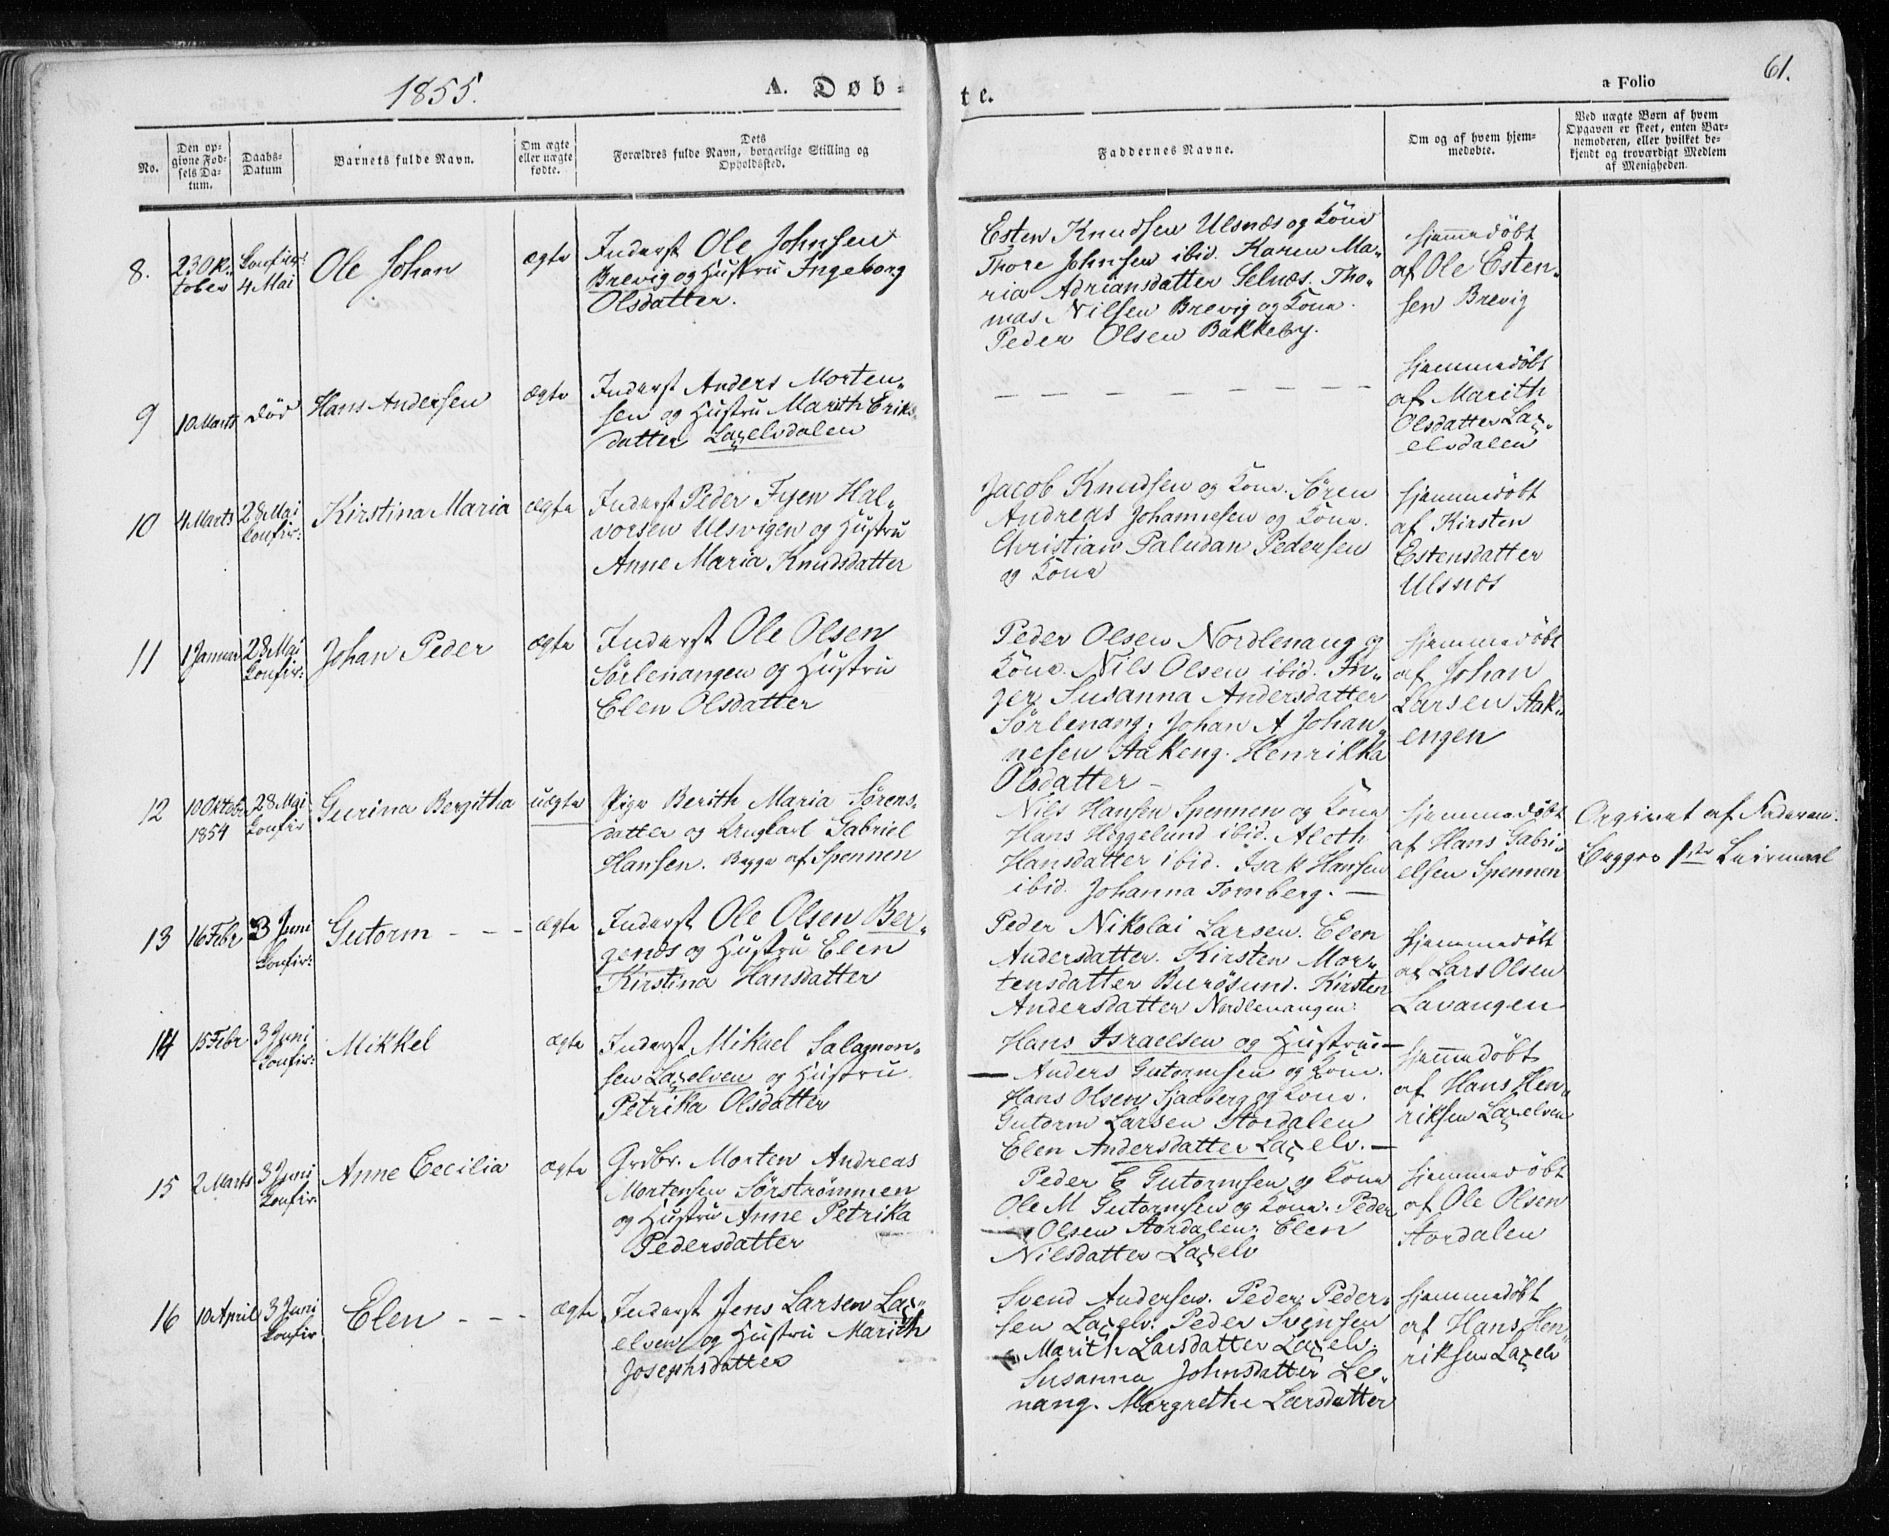 1855.
A. Døb-
te.
a Folio
61.
No.
Den op-
givne Fød-
sels Da-
tum.
Daabs-
Datum
Barnets fulde Navn.
Om ægte
eller uægte
fødte.
Dets
Forældres fulde Navn, borgerlige Stilling og
Opholdssted.
Faddernes Navne.
Om og af hvem hjem-
medøbte.
Ved uægte Børn af hvem
Opgaven er skeet, enten Bar-
nemoderen, eller hvilket be-
kjendt og troværdigt Medlem
af Menigheden.
8.
23 Ok-
tober
Confir:
4 Mai
Ole Johan
ægte
Inderst Ole Johnsen
Brevig og Hustru Ingeborg
Olsdatter.
Esten Knudsen Ulsnæs og Kone
Thore Johnsen ibid. Karen Ma-
ria Adriansdatter Selnæs. Tho-
mas Nilsen Brevig og Kone.
Peder Olsen Bakkeby.
Hjemmedøbt
af Ole Esten-
sen Brevig
9
10 Marts
død
Hans Andersen
ægte
Inderst Anders Morten-
sen og Hustru Marith Eriks
datter Laxelvdalen
— — — — — — — —
Hjemmedøbt
af Marith
Olsdatter Lax-
elvdalen
10
4 Marts
28 Mai
Confir:
Kirstina Maria
ægte
Inderst Peder Fyen Hal-
vorsen Ulsvigen og Hustru
Anne Maria Knudsdatter
Jacob Knudsen og Kone. Søren
Andreas Johannesen og Kone.
Christian Paludan Pedersen
og Kone
Hjemmedøbt
af Kirsten
Estensdatter
Ulsnæs
11
1 Januar
28 Mai
Confir:
Johan Peder
ægte
Inderst Ole Olsen
Sørlenangen og Hustru
Elen Olsdatter
Peder Olsen Nordlenang og
Kone. Nils Olsen ibid. In-
ger Susanna Andersdatter
Sørlenang. Johan A Johan-
nesen Aakeng. Henrikka
Olsdatter —
Hjemmedøbt
af Johan
Larsen Aak-
engen
12
10 Oktober
1854
28 Mai
Confir
Gurina Bergitha
uægte
Pige Berith Maria Sørens-
datter og Ungkarl Gabriel
Hansen. Begge af Spennen
Nils Hansen Spennen og Kone
Hans Heggelund ibid. Aleth
Hansdatter ibid. Isak Hansen
ibid. Johanna Tornberg. —
Hjemmedøbt
af Hans Gabri-
elsen Spennen
Opgivet af Faderen.
Begges 1ste Leiermaal
13
16 Febr
3 Juni
Confir:
Gutorm - - -
ægte
Inderst Ole Olsen Ber-
genes og Hustru Elen
Kirstina Hansdatter
Peder Nikolai Larsen. Elen
Andersdatter. Kirsten Mor-
tensdatter Burøsund. Kirsten
Andersdatter Nordlenangen.
Hjemmedøbt
af Lars Olsen
Lavangen
14
15 Febr
3 Juni
Confir:
Mikkel
ægte
Inderst Mikael Salamon-
sen Laxelven og Hustru
Petrika Olsdatter
Hans Israelsen og Hustru —
— Anders Gutormsen og Kone.
Hans Olsen Sjaaberg og Kone.
Gutorm Larsen Stordalen
Elen Andersdatter Laxelv. —
Hjemmedøbt
af Hans Hen-
riksen Laxelven
15
2 Marts
3 Juni
Confir
Anne Cecilia
ægte
Grdbr. Morten Andreas
Mortensen Sørstrømmen
og Hustru Anne Petrika
Pedersdatter
Peder E Gutormsen og Kone
Ole M Gutormsen og Kone. Peder
Olsen Stordalen. Elen
Nilsdatter Laxelv
Hjemmedøbt
af Ole Olsen
Stordalen
16
10 April
3 Juni
Confir
Elen - - -
ægte
Inderst Jens Larsen Lax-
elven og Hustru Marith
Josephsdatter
Svend Andersen. Peder Peder-
sen Laxelv. Peder Svensen
Marith Larsdatter Laxelv.
Susanna Johnsdatter Le-
nang. Margrethe Larsdatter
Hjemmedøbt
af Hans Hen-
riksen Laxelv